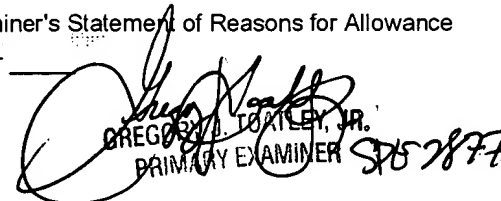 iner's Statement of Reasons for Allowance
GREGORY J. TOATLEY, JR.
PRIMARY EXAMINER